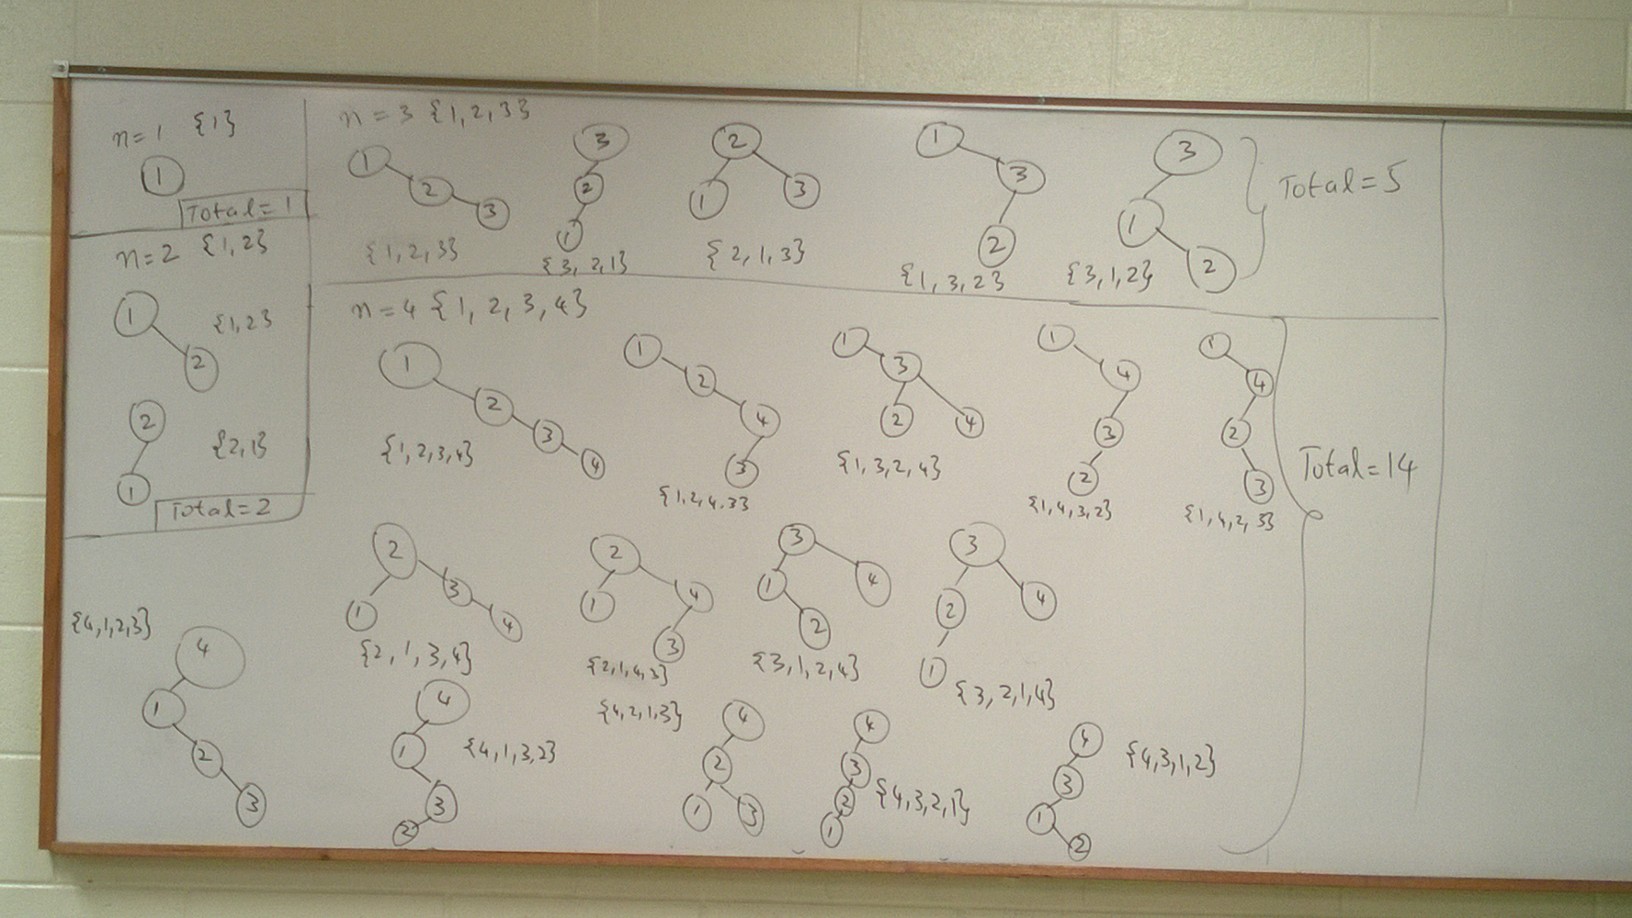 n=1 {1}
1
Total=1
n=2 {1,2}
1
2
{1,2}
2
1
{2,1}
Total=2
n=3 {1,2,3}
1
2
3
{1,2,3}
3
2
1
{3,2,1}
2
1 3
{2,1,3}
1
3
2
{1,3,2}
3
1
2
{3,1,2}
Total=5
n=4 {1,2,3,4}
1
2
3
4
{1,2,3,4}
1
2
4
3
{1,2,4,3}
1
3
2 4
{1,3,2,4}
1
4
3
2
{1,4,3,2}
1
4
2
3
{1,4,2,3}
Total=14
2
1 3
4
{2,1,3,4}
2
1 4
3
{2,1,4,3}
3
1 4
2
{3,1,2,4}
3
2 4
1
{3,2,1,4}
{4,1,2,3}
4
1
2
3
4
1
3
2
{4,1,3,2}
{4,2,1,3}
4
2
1 3
4
3
2
1
{4,3,2,1}
4
3
1
2
{4,3,1,2}